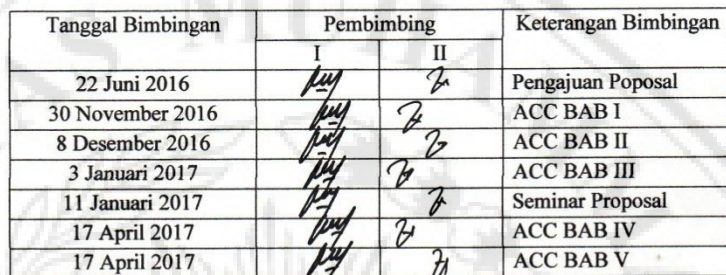 Tanggal Bimbingan Pembimbing Keterangan Bimbingan
I II
22 Juni 2016 Pengajuan Poposal
30 November 2016 ACC BAB I
8 Desember 2016 ACC BAB II
3 Januari 2017 ACC BAB III
11 Januari 2017 Seminar Proposal
17 April 2017 ACC BAB IV
17 April 2017 ACC BAB V